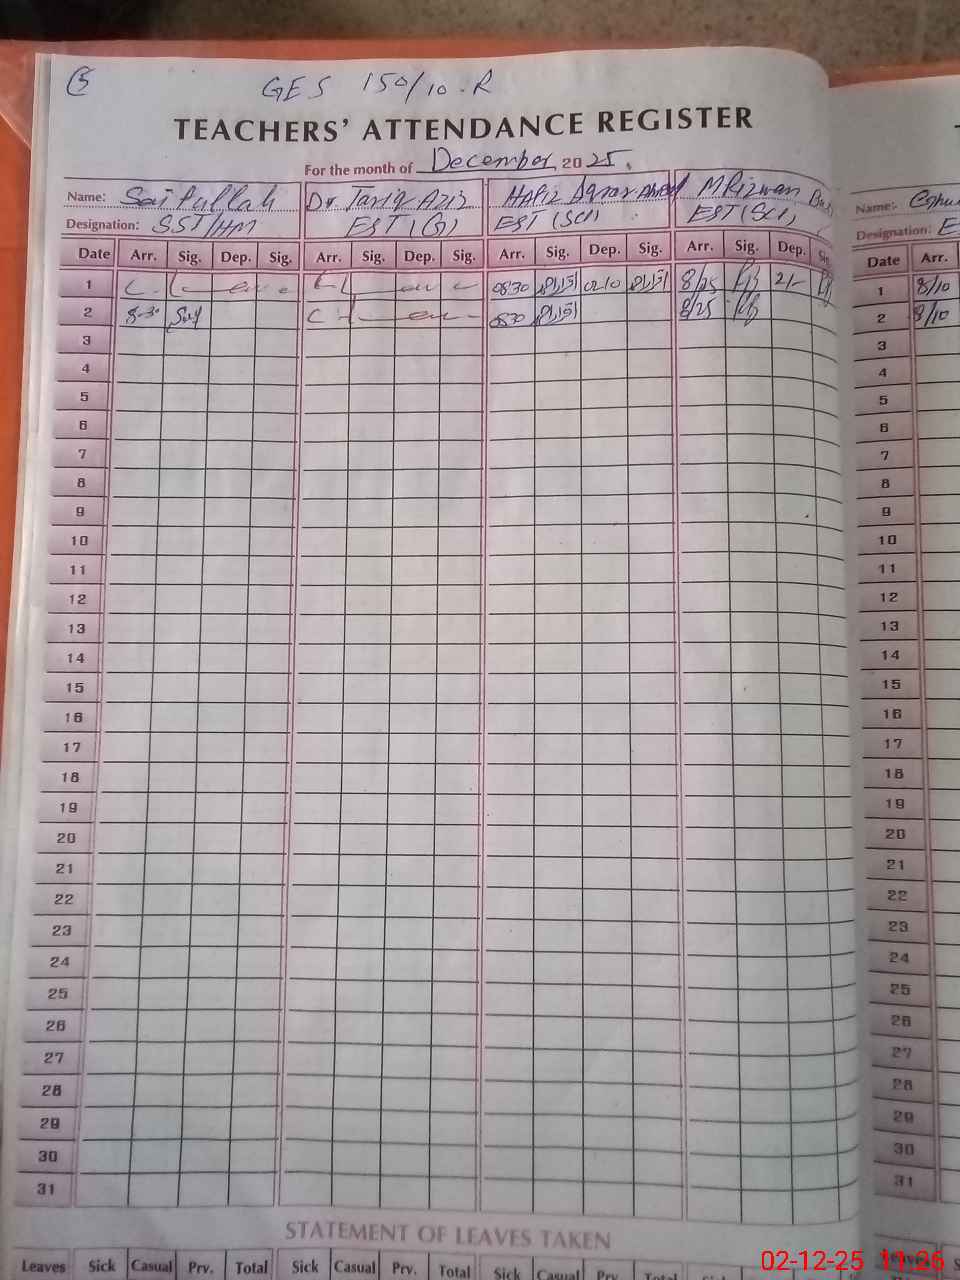 5
GES 150/10.R
TEACHERS' ATTENDANCE REGISTER
For the month of December 2025.
Name: Saifullah Dr. Tariq Aziz Hafiz Ahmed M Rizwan
Designation: SST/HM EST (G) EST (SCI) EST (SCI)
Name:
Designation: E
Date Arr. Sig. Dep. Sig. Arr. Sig. Dep. Sig. Arr. Sig. Dep. Sig. Arr. Sig. Dep. Sig. Date Arr.
1 C. Leave C L eave 0830 0210 8/25 2/- 1 8/10
2 8-30 Saif C Leave 0830 8/25 2 8/10
3 3
4 4
5 5
6 6
7 7
8 8
9 9
10 10
11 11
12 12
13 13
14 14
15 15
16 16
17 17
18 18
19 19
20 20
21 21
22 22
23 23
24 24
25 25
26 26
27 27
28 28
29 29
30 30
31 31
STATEMENT OF LEAVES TAKEN
Leaves Sick Casual Prv. Total Sick Casual Prv. Total Sick Casual Prv. Total
02-12-25 11:26